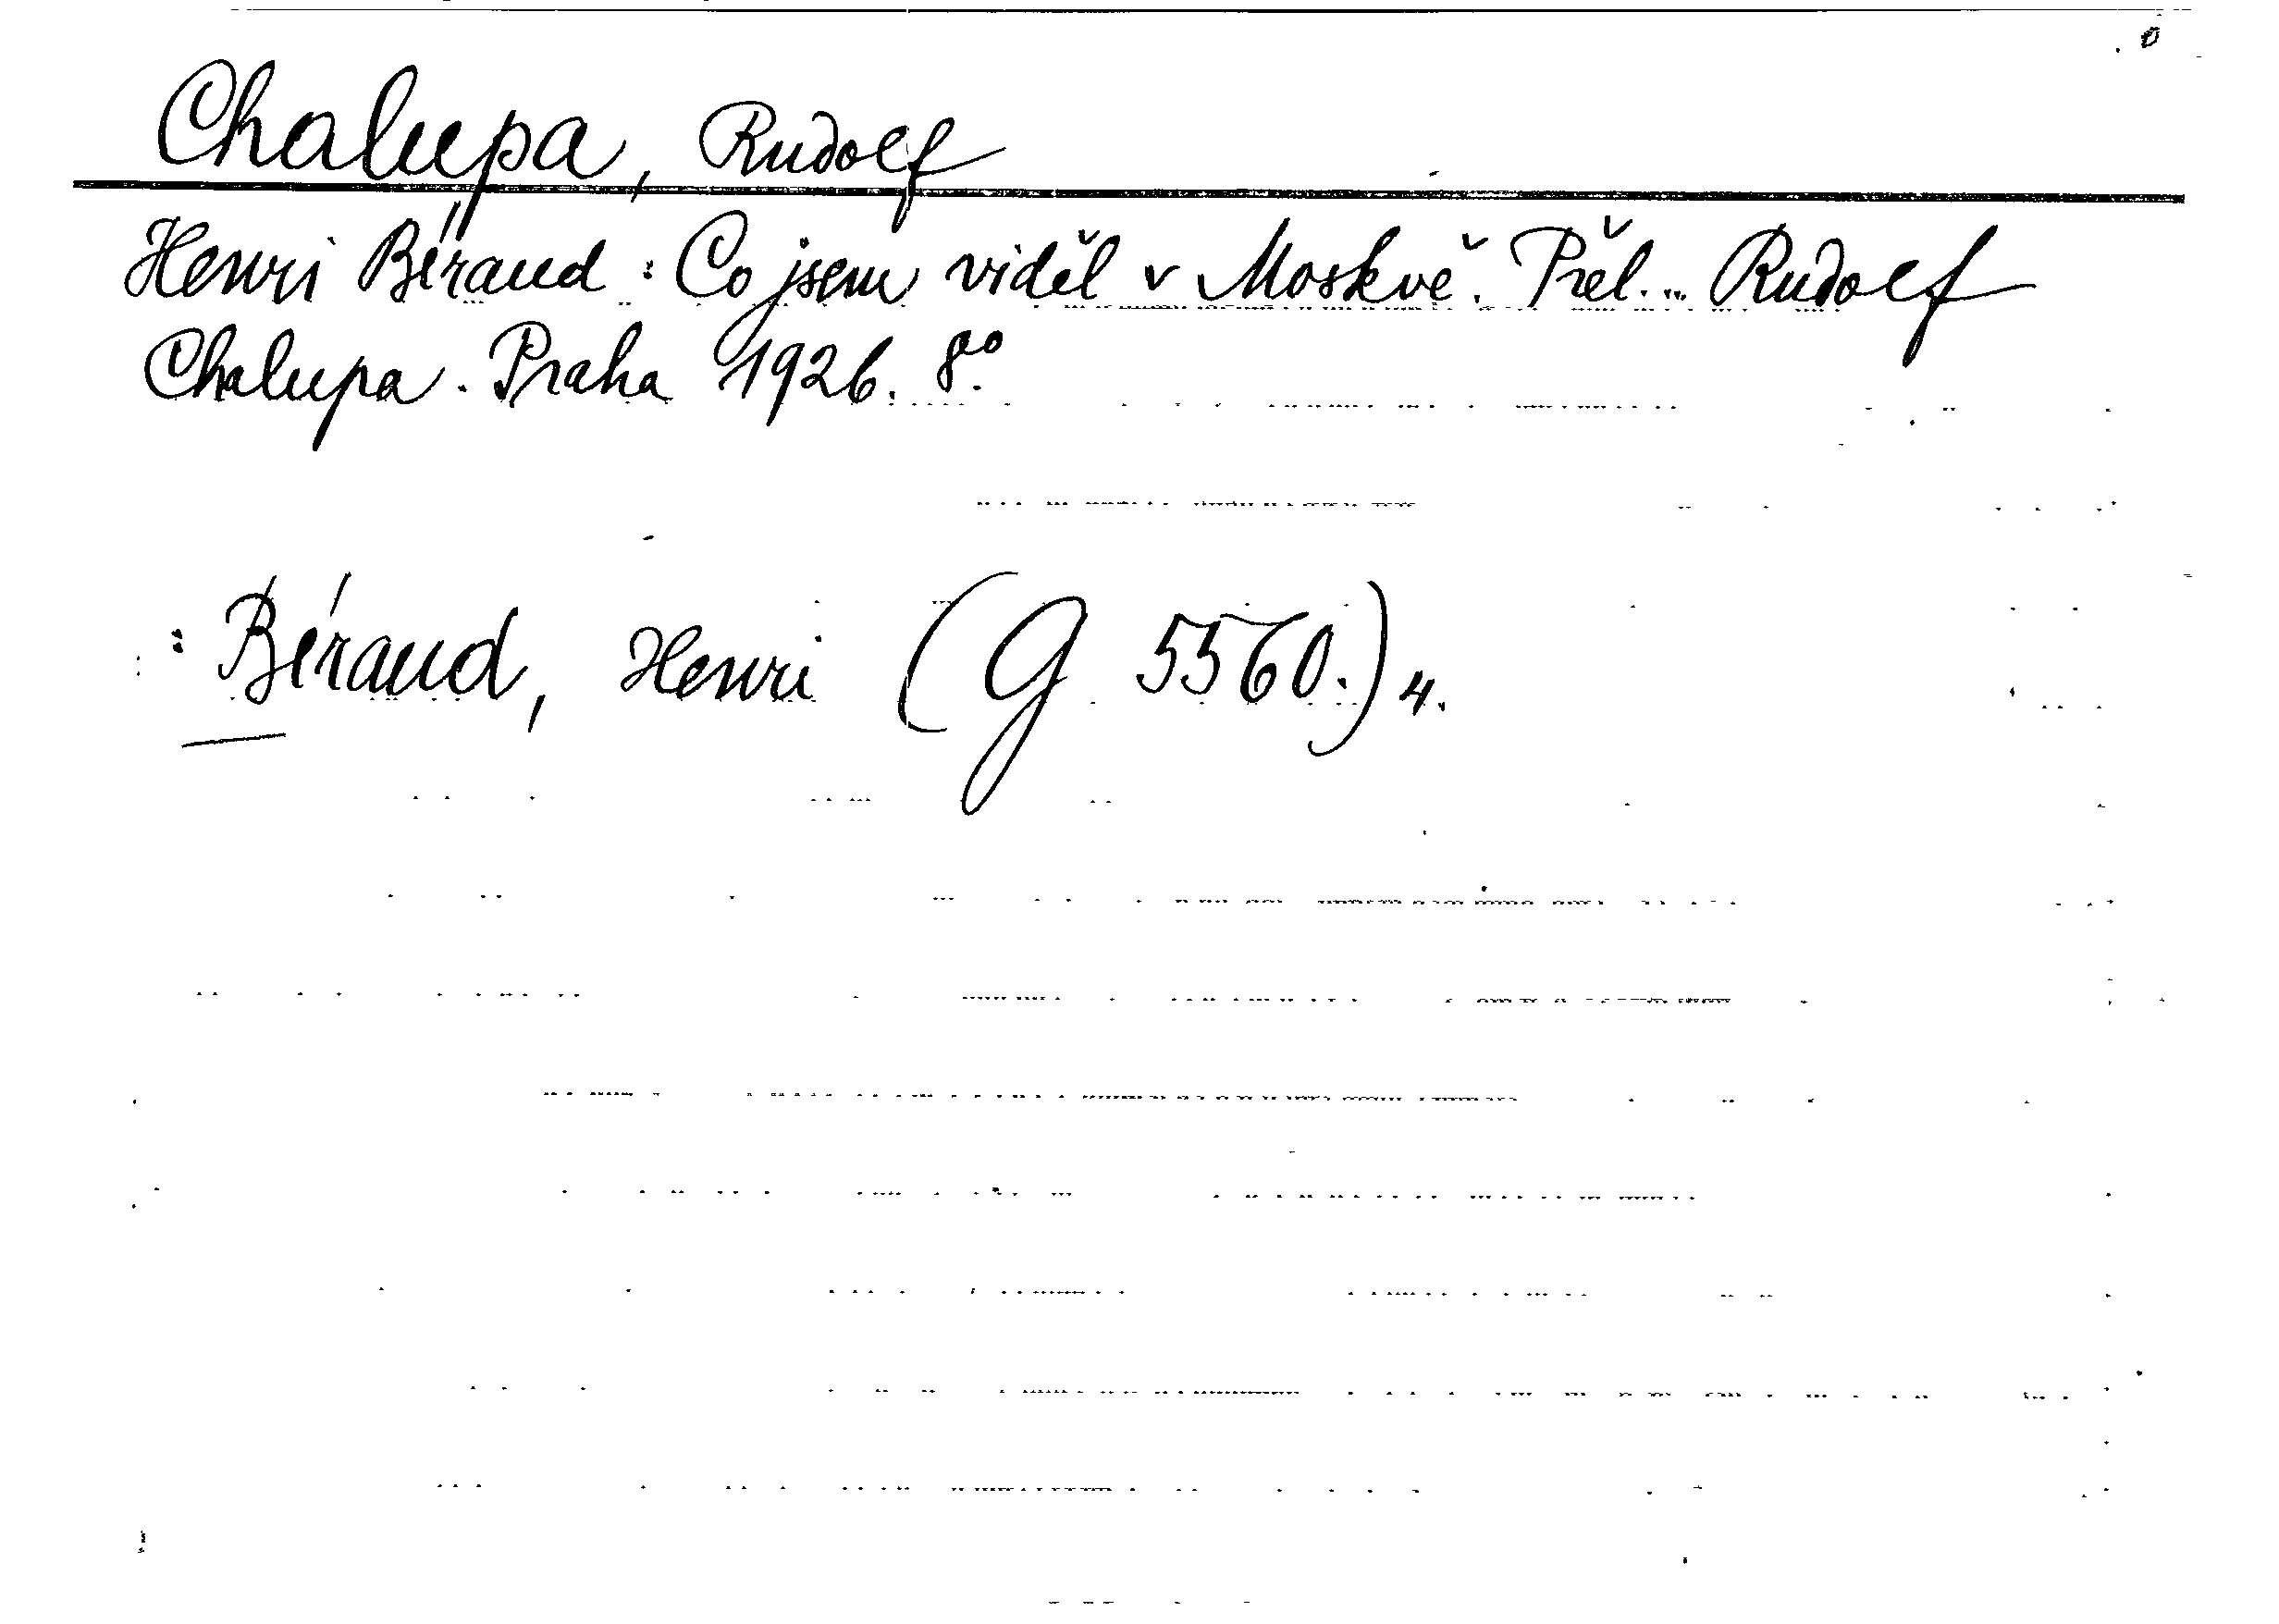 Chalupa, Rudolf
Henri Béraud: Co jsem viděl v Moskvě. Přel... Rudolf
Chalupa. Praha 1926. 8°.
: Béraud, Henri (G 5560.) 4.